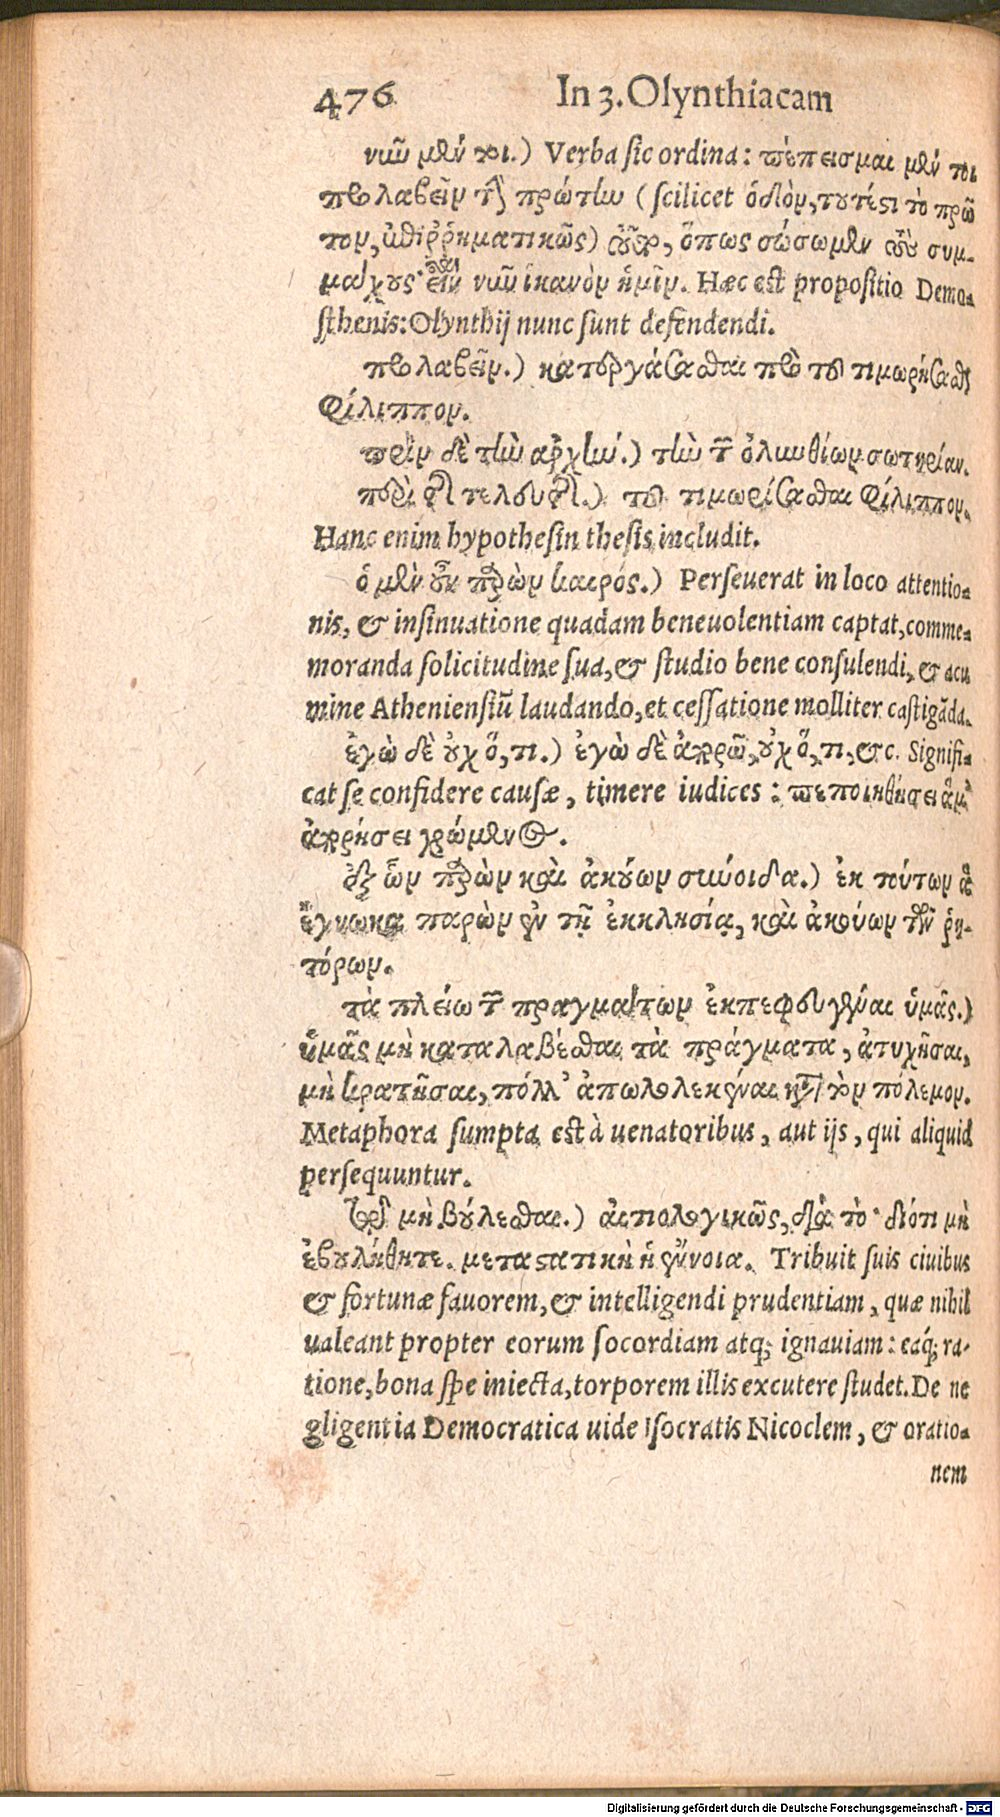 476 In 3. Olynthiacam
νῦν μὲν τοι.) Verba sic ordina: πέπεισμαι μὲν τοι
προλαβεῖν τὴν πρώτην (scilicet ὁδὸν, τουτέστι τὸ πρῶ
τον, ἐπιῤῥηματικῶς) ὅπως σώσωμεν τοὺς συμ-
μάχους· νῦν ἱκανὸν ἡμῖν. Hæc est propositio Demo-
sthenis: Olynthij nunc sunt defendendi.
προλαβεῖν.) κατεργάσασθαι πρὸ τοῦ τιμωρήσασθαι
Φίλιππον.
πρὶν δὲ τὴν ἀρχὴν.) τὴν τῶν ὀλυνθίων σωτηρίαν.
περὶ τῆς τελευτῆς.) τοῦ τιμωρίσασθαι Φίλιππον.
Hanc enim hypothesin thesis includit.
ὁ μὲν οὖν παρὼν καιρός.) Perseuerat in loco attentio-
nis, & insinuatione quadam beneuolentiam captat, comme-
moranda solicitudine sua, & studio bene consulendi, & acu
mine Atheniensiũ laudando, et cessatione molliter castigãda.
ἐγὼ δὲ οὐχ ὅ, τι.) ἐγὼ δὲ ἀπορῶ, οὐχ ὅ, τι, &c. Signifi-
cat se confidere causæ, timere iudices: πεποιθήσει ἅμα
ἀπορήσει χρώμενος.
ἐξ ὧν παρὼν καὶ ἀκούων σύνοιδα.) ἐκ τούτων ἃ
ἔγνωκα παρὼν ἐν τῇ ἐκκλησίᾳ, καὶ ἀκούων τῶν ῥη-
τόρων.
τὰ πλείω τῶν πραγμάτων ἐκπεφευγέναι ὑμᾶς.)
ὑμᾶς μὴ καταλαβέσθαι τὰ πράγματα, ἀτυχῆσαι,
μὴ κρατῆσαι, πόλλ' ἀπωλολεκέναι κατὰ τὸν πόλεμον.
Metaphora sumpta est à uenatoribus, aut ijs, qui aliquid
persequuntur.
τῷ μὴ βούλεσθαι.) αἰτιολογικῶς, διὰ τὸ· διότι μὴ
ἐβουλήθητε. μεταστατικὴ ἡ ἔννοια. Tribuit suis ciuibus
& fortunæ fauorem, & intelligendi prudentiam, quæ nihil
ualeant propter eorum socordiam atq; ignauiam: eaq; ra-
tione, bona spe iniecta, torporem illis excutere studet. De ne
gligentia Democratica uide Isocratis Nicoclem, & oratio-
nem
Digitalisierung gefördert durch die Deutsche Forschungsgemeinschaft - DFG